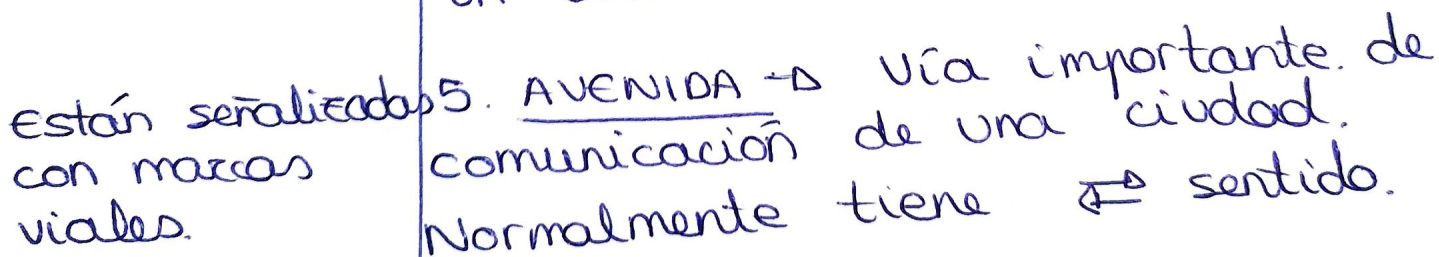 Están señalizadas
con marcas
viales.
5. AVENIDA → Vía importante. de
comunicación de una ciudad.
Normalmente tiene ⇄ sentido.